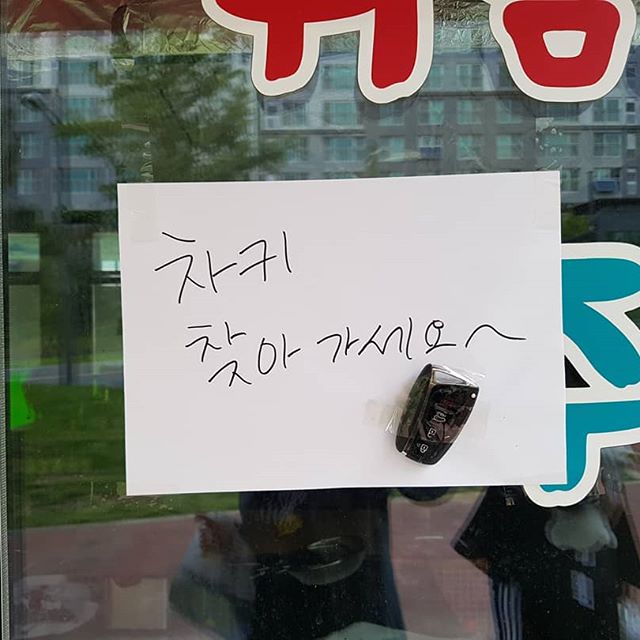 차키
찾아가세요~